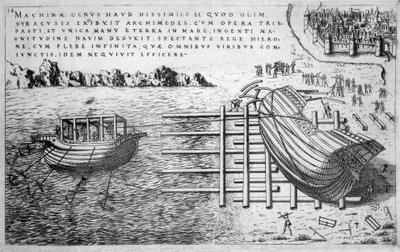 MACHINÆ GENVS HAVD DISSIMILE EI, QVOD OLIM
SYRACVSIS EXIBVIT ARCHIMEDES, CVM OPERA TRIS,
PASTI, ET VNICA MANV E TERRA IN MARE, INGENTI MA,
GNITVDINE NAVIM DEDVXIT, SPECTANTE REGE HIERO,
NE, CVM PLEBE INFINITA, QVÆ OMNIBVS VIRIBVS CON
IVNCTIS, IDEM NEQVIVIT EFFICERE